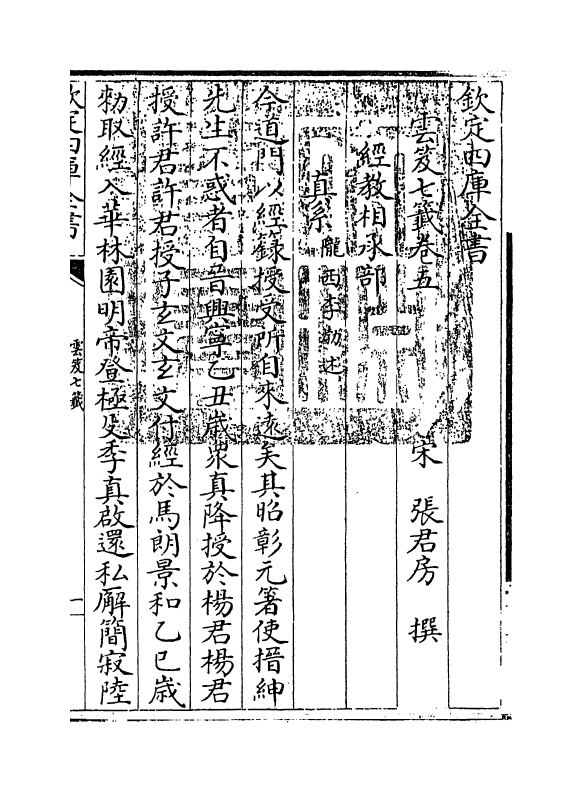 欽定四庫全書
雲笈七籤卷五
宋 張君房 撰
經教相承部
真系 隴西李渤述
今道門以經籙授受所自來遠矣其昭彰元著使搢紳
先生不惑者自晉興寧乙丑歲衆真降授於楊君楊君
授許君許君授子玄文玄文付經於馬朗景和乙巳歲
勑取經入華林園明帝登極殳季真啟還私廨簡寂陸
欽定四庫全書
雲笈七籤
一